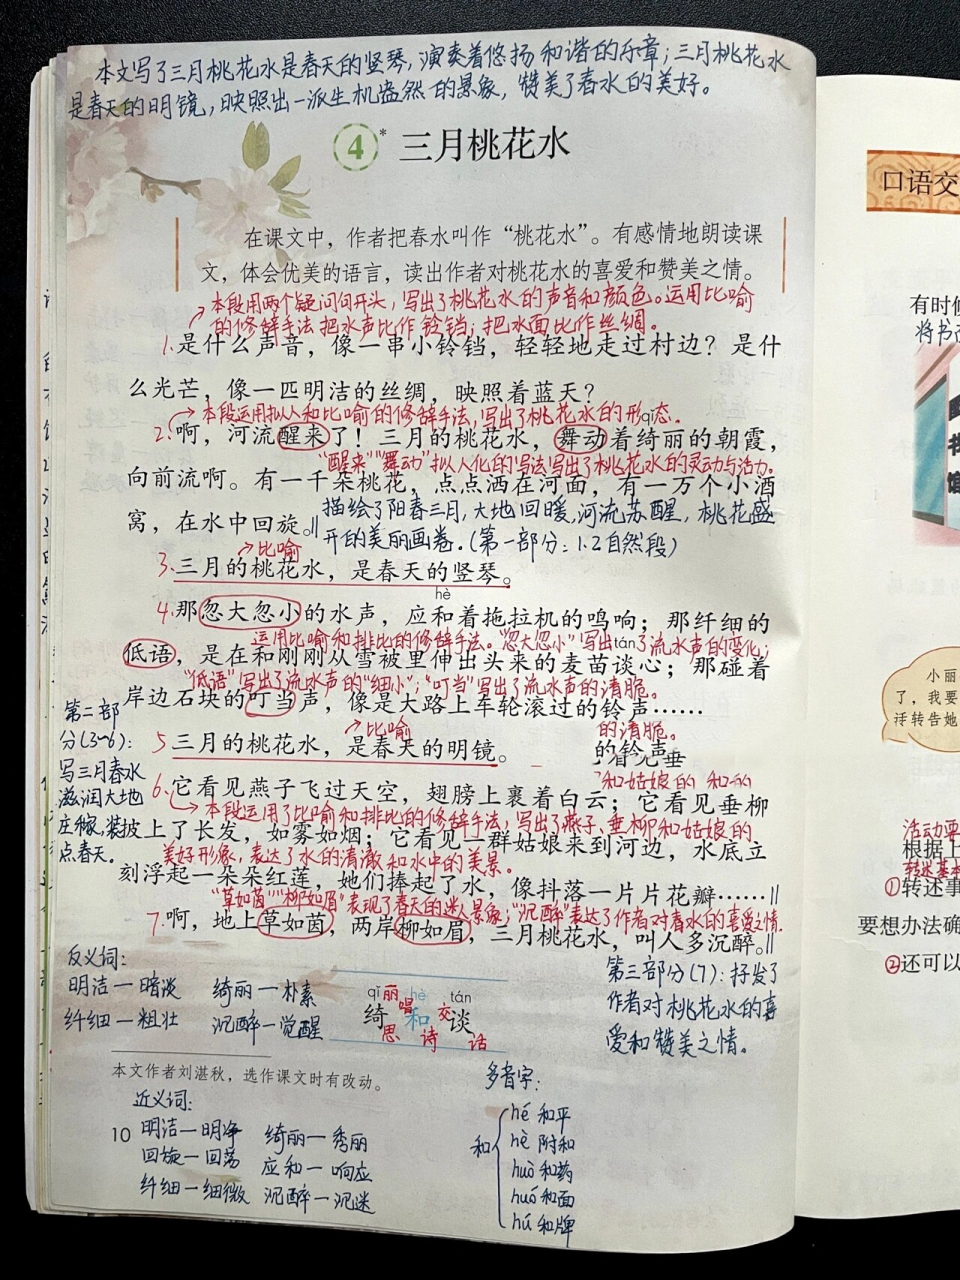 本文写了三月桃花水是春天的竖琴,演奏着悠扬和谐的乐章;三月桃花水
是春天的明镜,映照出一派生机盎然的景象,赞美了春水的美好。
4* 三月桃花水
在课文中，作者把春水叫作“桃花水”。有感情地朗读课
文，体会优美的语言，读出作者对桃花水的喜爱和赞美之情。
本段用两个疑问句开头,写出了桃花水的声音和颜色。运用比喻
的修辞手法把水声比作铃铛;把水面比作丝绸。
1.是什么声音，像一串小铃铛，轻轻地走过村边？是什
么光芒，像一匹明洁的丝绸，映照着蓝天？
本段运用拟人和比喻的修辞手法,写出了桃花水的形态.
qǐ
2.啊，河流醒来了！三月的桃花水，舞动着绮丽的朝霞，
“醒来”“舞动”拟人化的写法写出了桃花水的灵动与活力.
向前流啊。有一千朵桃花，点点洒在河面，有一万个小酒
窝，在水中回旋。‖
描绘了阳春三月,大地回暖,河流苏醒,桃花盛
开的美丽画卷.(第一部分:1.2自然段)
比喻
3.三月的桃花水，是春天的竖琴。
hè
4.那忽大忽小的水声，应和着拖拉机的鸣响；那纤细的
运用比喻和排比的修辞手法。“忽大忽小”写出了流水声的变化;
tán
低语，是在和刚刚从雪被里伸出头来的麦苗谈心；那碰着
“低语”写出了流水声的“细小”;“叮当”写出了流水声的清脆。
岸边石块的叮当声，像是大路上车轮滚过的铃声……
比喻
的清脆。
5 三月的桃花水，是春天的明镜。
的铃声
垂
和姑娘的
第二部
分(3~6):
写三月春水
滋润大地
庄稼,装
点春天.
6.它看见燕子飞过天空，翅膀上裹着白云；它看见垂柳
本段运用了比喻和排比的修辞手法,写出了燕子、垂柳和姑娘的
披上了长发，如雾如烟；它看见一群姑娘来到河边，水底立
美好形象,表达了水的清澈和水中的美景.
刻浮起一朵朵红莲，她们捧起了水，像抖落一片片花瓣……‖
“草如茵”“柳如眉”表现了春天的迷人景象;“沉醉”表达了作者对春水的喜爱之情.
7.啊，地上草如茵，两岸柳如眉，三月桃花水，叫人多沉醉。‖
第三部分(7):抒发了
作者对桃花水的喜
爱和赞美之情.
反义词:
明洁—暗淡 绮丽—朴素
纤细—粗壮 沉醉—觉醒
qǐ hè tán
绮 和 谈
丽 唱 交
思 诗 话
本文作者刘湛秋，选作课文时有改动。
近义词:
明洁—明净 绮丽—秀丽
回旋—回荡 应和—响应
纤细—细微 沉醉—沉迷
10
多音字:
和
hé 和平
hè 附和
huò 和药
huó 和面
hú 和牌
口语交
有时候
将书
图
书
馆
小丽
了，我要
话转告她
活动要
根据上
转述基本
①转述事
要想办法确
②还可以